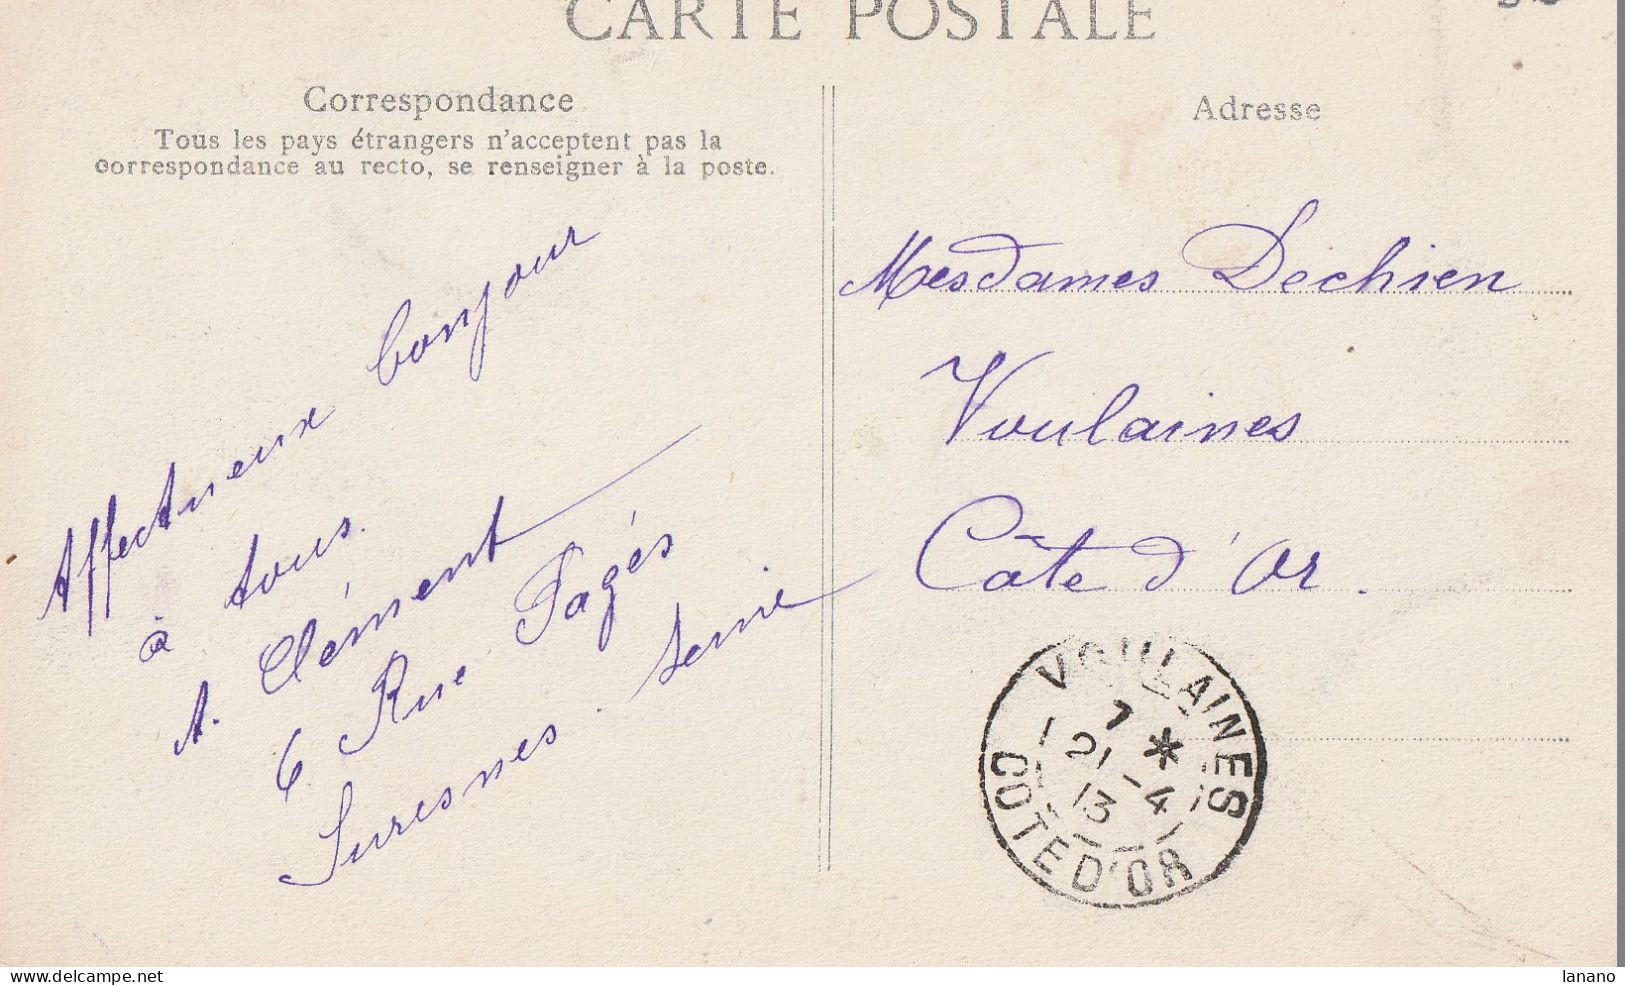 CARTE POSTALE
Correspondance
Tous les pays étrangers n'acceptent pas la
correspondance au recto, se renseigner à la poste.
Affectueux bonjour
à tous.
A. Clément
6 Rue Pagés
Suresnes. Seine
Adresse
Mesdames Dechien
Voulaines
Côte d'Or.
VOULAINES
7 *
21 - 4
13
COTE D'OR
www.delcampe.net
lanano